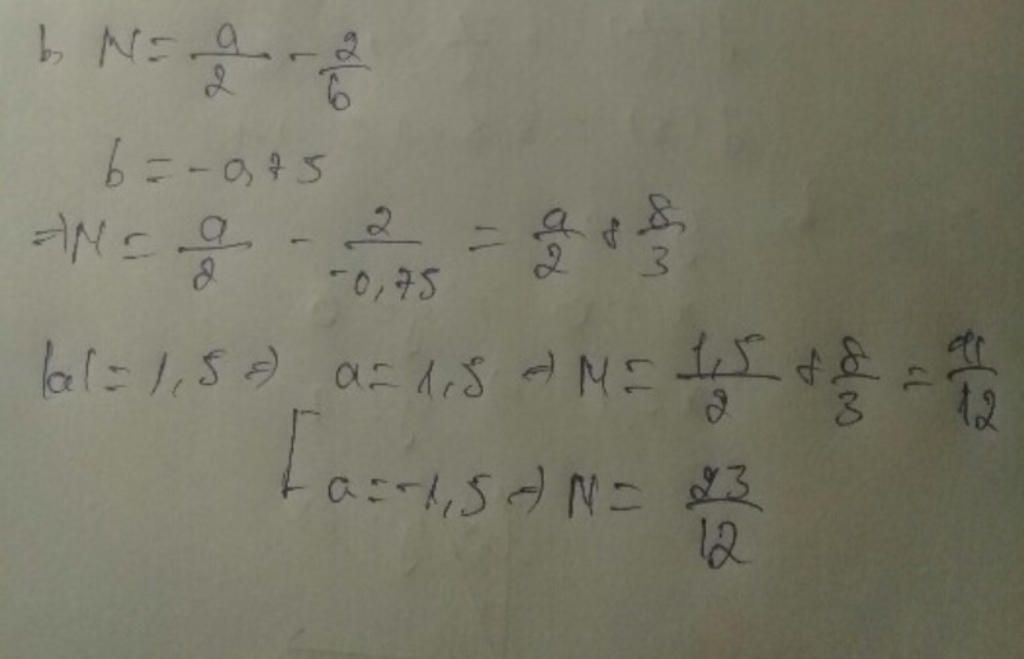 b, N = a/2 - 2/b
b = -0,75
=> N = a/2 - 2/-0,75 = a/2 + 8/3
|a| = 1,5 => a = 1,5 => N = 1,5/2 + 8/3 = 41/12
[ a = -1,5 => N = 23/12